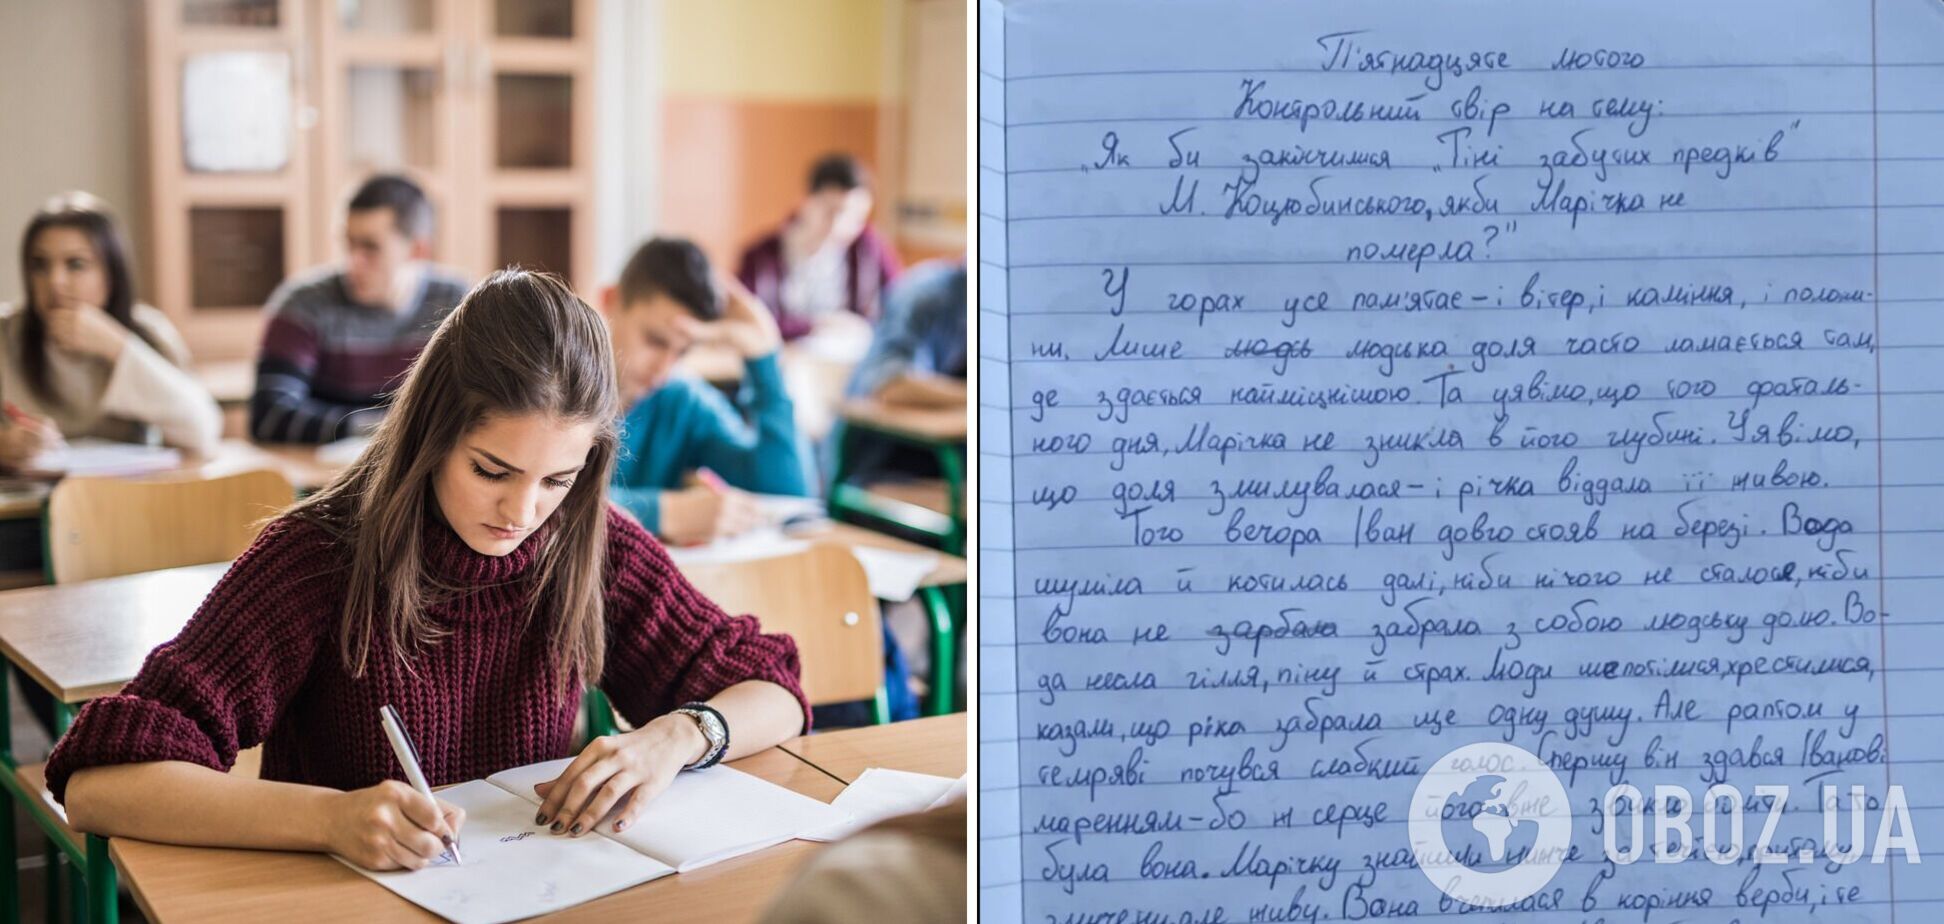 П'ятнадцяте лютого
Контрольний твір на тему:
„Як би закінчилися „Тіні забутих предків"
М. Коцюбинського, якби Марічка не
померла?"
У горах усе пам'ятає – і вітер, і каміння, і полони-
ни. Лише людсь людська доля часто ламається там,
де здається найміцнішою. Та уявімо, що того фаталь-
ного дня, Марічка не зникла в його глубині. Уявімо,
що доля змилувалася – і річка віддала її живою.
Того вечора Іван довго стояв на березі. Вода
шуміла й котилась далі, ніби нічого не сталося, ніби
вона не зарбала забрала з собою людську долю. Во-
да несла гілля, піну й страх. Люди шепотілися, хрестилися,
казали, що ріка забрала ще одну душу. Але раптом у
темряві почувся слабкий голос. Спершу він здався Іванові
маренням – бо ж серце його вже звикло Та то
була вона. Марічку знайшли нижче за течією,
але живу. Вона вчепилася в коріння верби, і те
OBOZ.UA